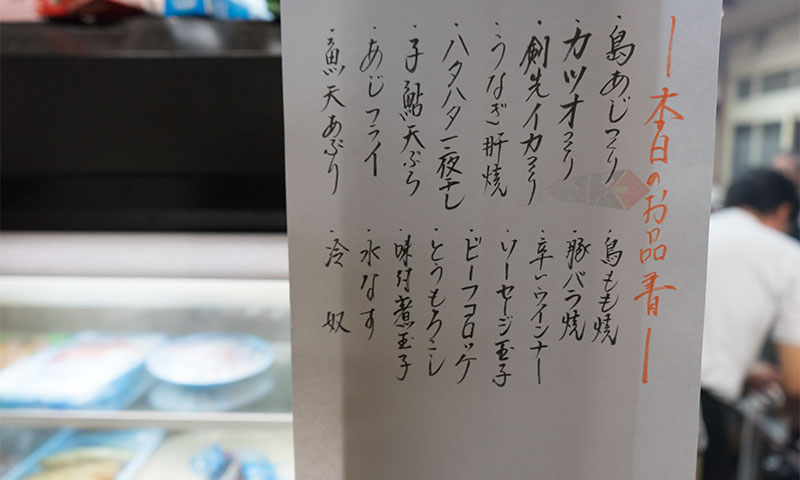 ー本日のお品書ー
・島あじつくり
・カツオつくり
・剣先イカつくり
・うなぎ肝焼
・ハタハタ一夜干し
・子鮎天ぷら
・あじフライ
・魚天あぶり
・鳥もも焼
・豚バラ焼
・辛いウインナー
・ソーセージ玉子
・ビーフコロッケ
・とうもろこし
・味付煮玉子
・水なす
・冷奴